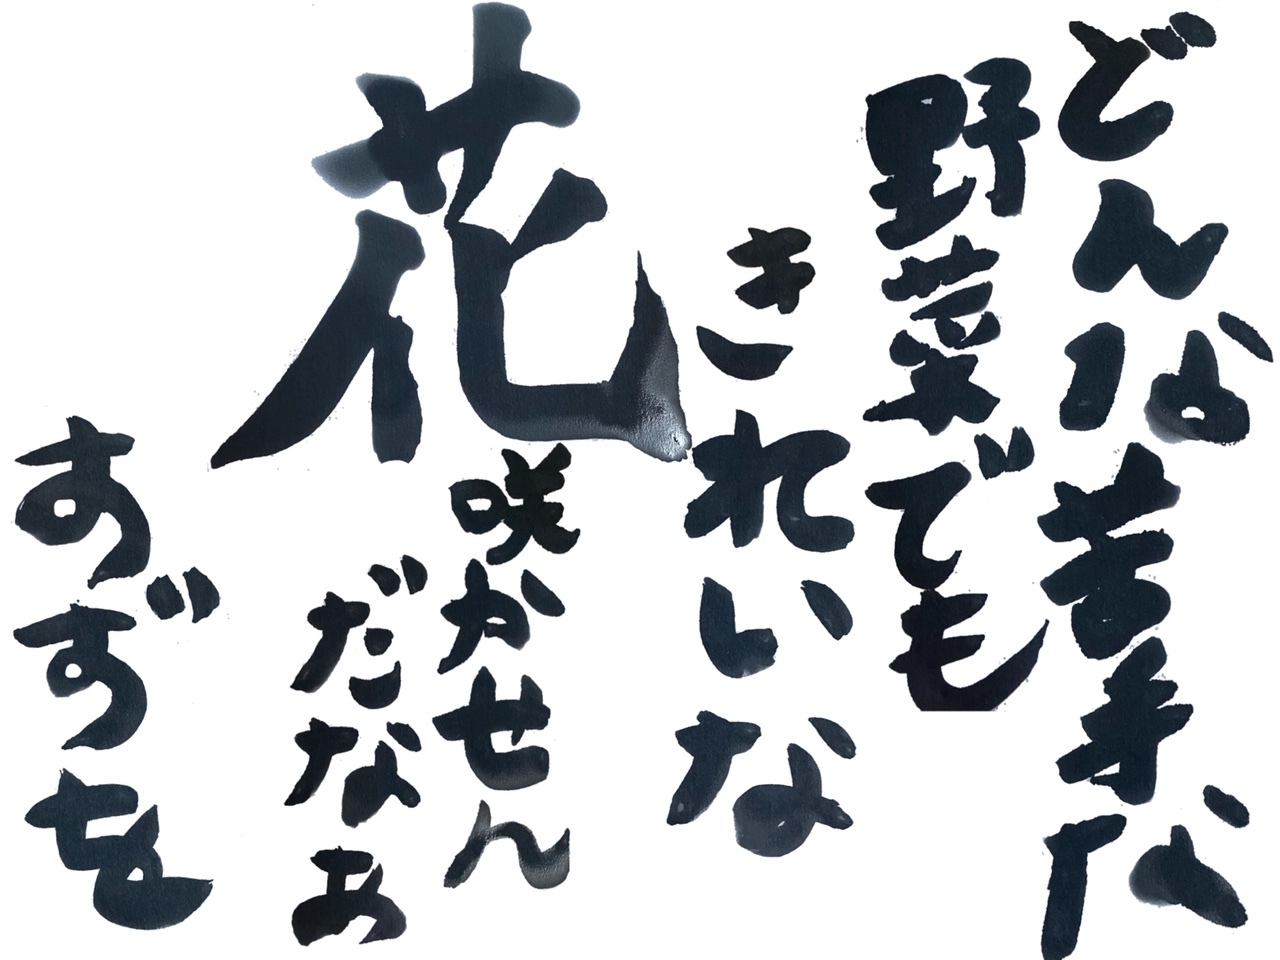 どんな苦手な
野菜でも
きれいな
花
咲かせん
だなぁ
すずを